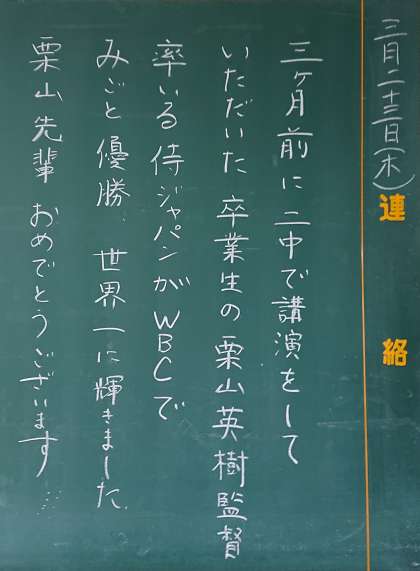 三月二十三日(木)
連絡
三ヶ月前に二中で講演をして
いただいた卒業生の栗山英樹監督
率いる侍ジャパンがWBCで
みごと優勝、世界一に輝きました。
栗山先輩おめでとうございます